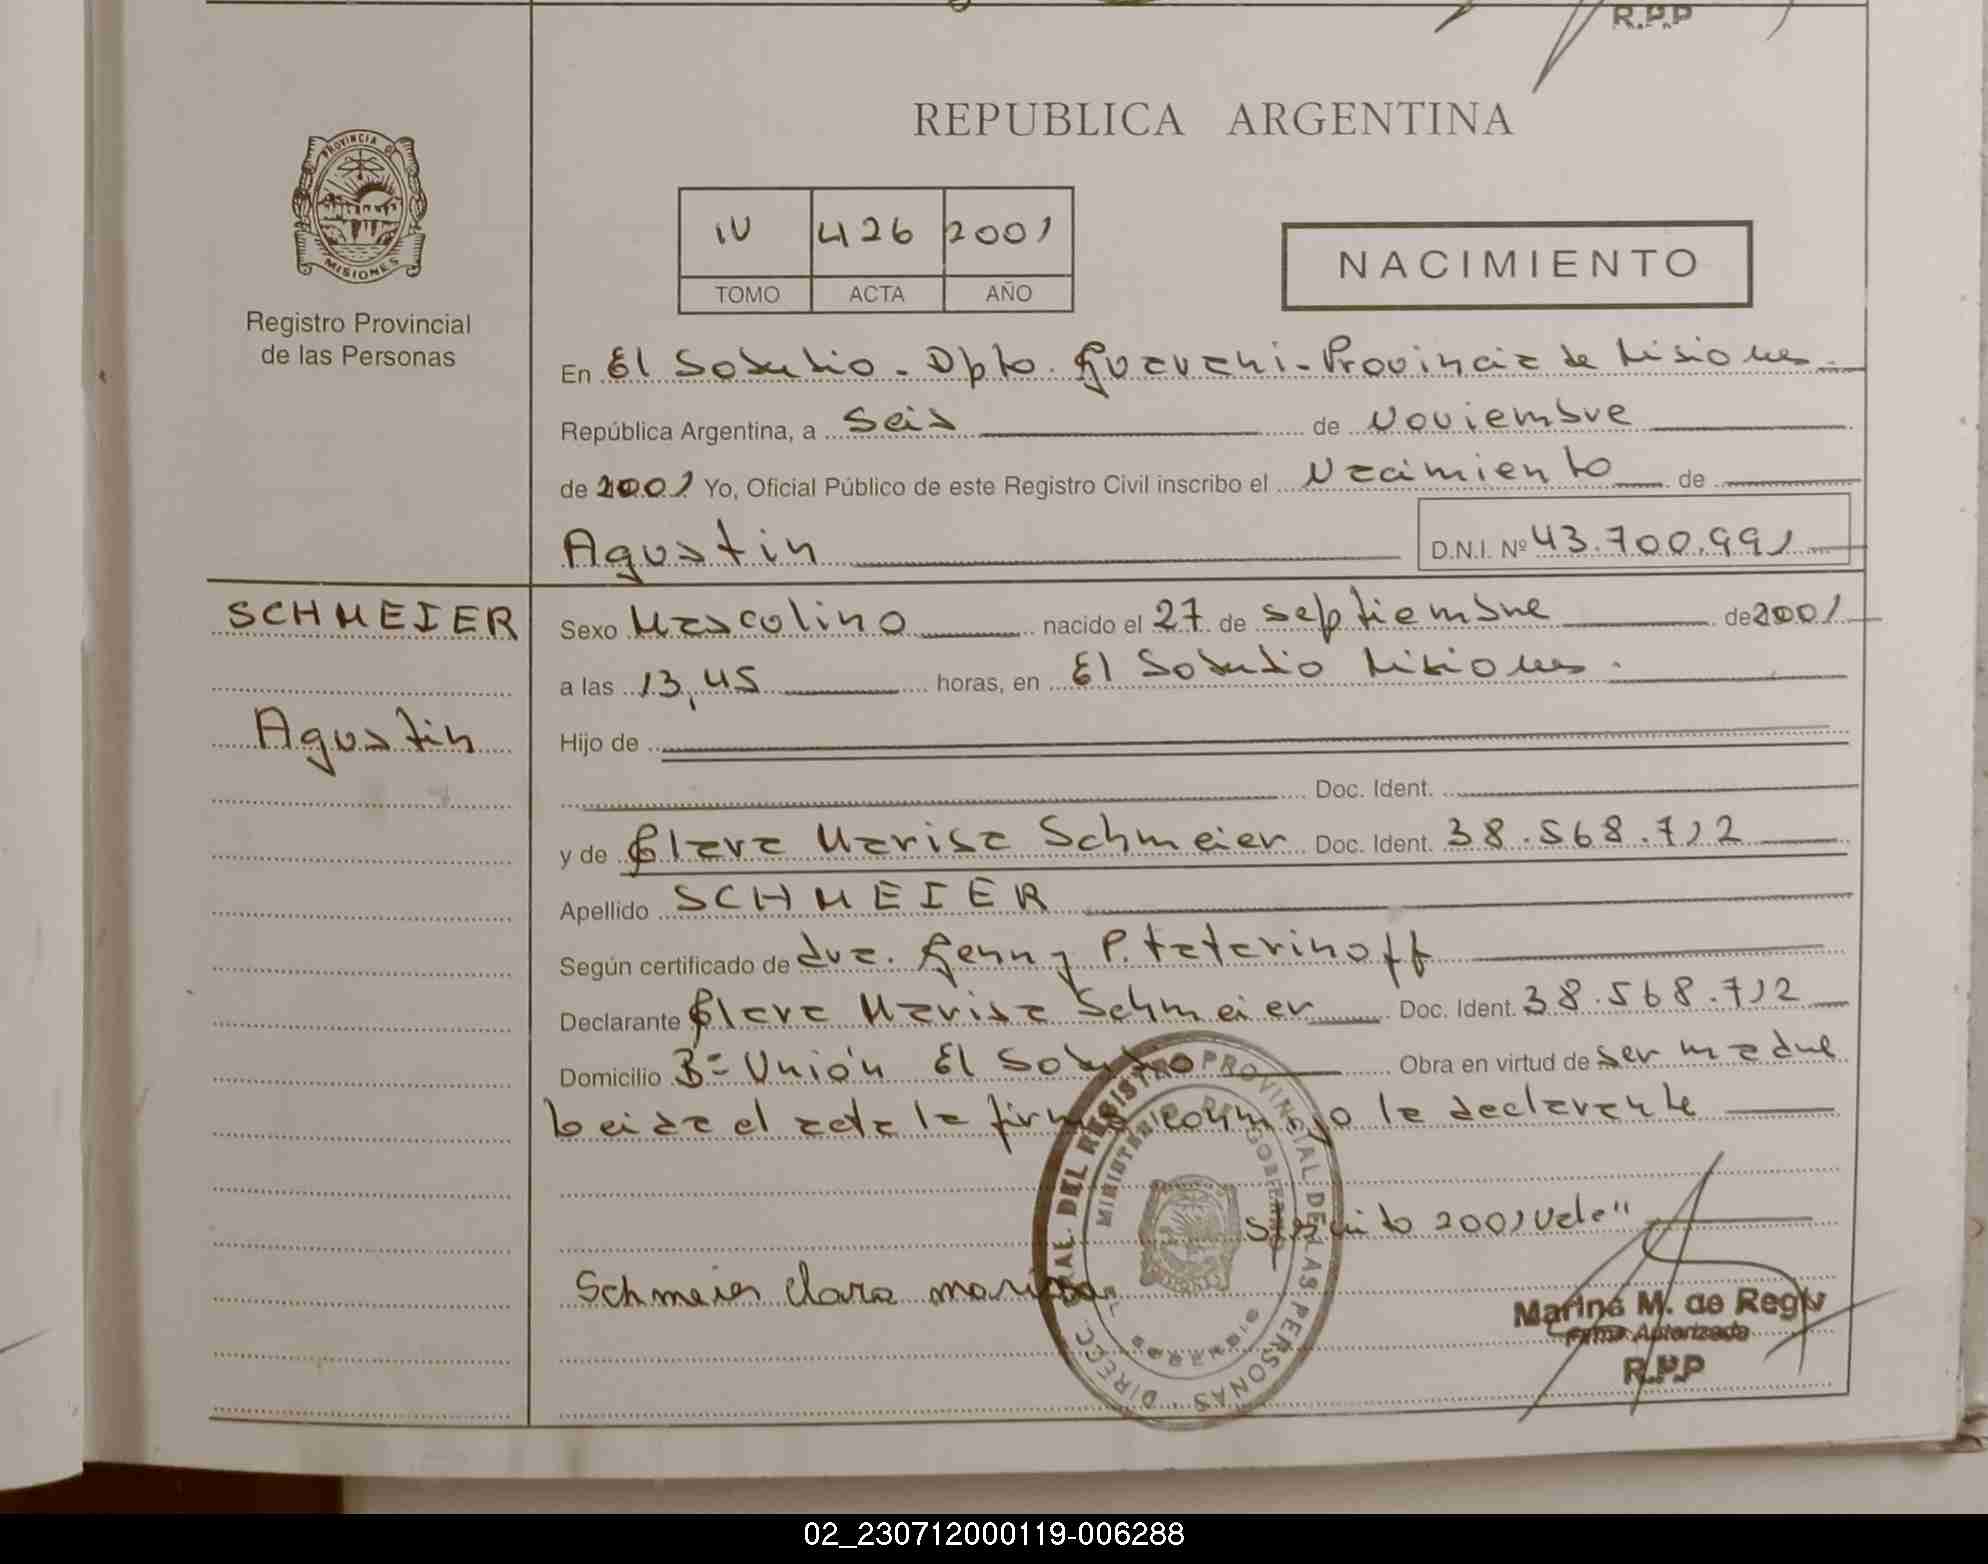 R.P.P
REPUBLICA ARGENTINA
PROVINCIA D
MISIONES
Registro Provincial
de las Personas
IV 426 2001
TOMO ACTA AÑO
NACIMIENTO
En El Soberbio - Dpto. Guarani - Provincia de Misiones
República Argentina, a Seis de Noviembre
de 2001 Yo, Oficial Público de este Registro Civil inscribo el Nacimiento de
Agustin D.N.I. Nº 43.700.991
SCHMEIER
Agustin
Sexo Masculino nacido el 27 de septiembre de 2001
a las 13,45 horas, en El Soberbio Misiones.
Hijo de
Doc. Ident.
y de Clara Marisa Schmeier Doc. Ident. 38.568.712
Apellido SCHMEIER
Según certificado de dra. Genny P. Tatarinoff
Declarante Clara Marisa Schmeier Doc. Ident. 38.568.712
Domicilio Bº Unión El Soberbio Obra en virtud de ser madre
Leida el acta la firma conmigo la declarante
2001 Vale"
Schmeier Clara marisa
DIRECC. GRAL. DEL REGISTRO PROVINCIAL DE LAS PERSONAS
MINISTERIO DE GOBIERNO
EL SOBERBIO
Marina M. de Regiv
Firma Autorizada
R.P.P
02_230712000119-006288